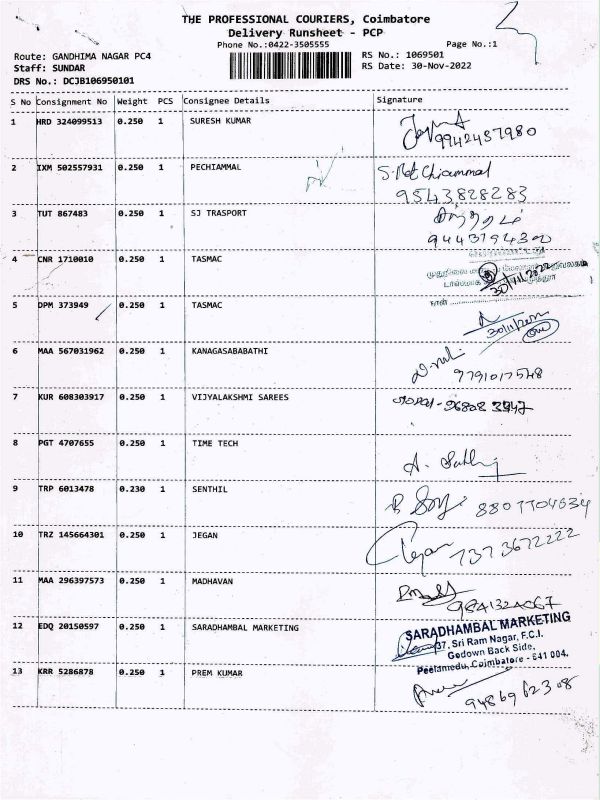 THE PROFESSIONAL COURIERS, Coimbatore
Delivery Runsheet - PCP
Phone No.:0422-3505555
Page No.:1
Route: GANDHIMA NAGAR PC4
RS No.: 1069501
Staff: SUNDAR
RS Date: 30-Nov-2022
DRS No.: DCJB106950101
S No Consignment No Weight PCS Consignee Details Signature
1 HRD 324099513 0.250 1 SURESH KUMAR
9942437980
2 IXM 502557931 0.250 1 PECHIAMMAL
9543828283
3 TUT 867483 0.250 1 SJ TRASPORT
4 CNR 1710010 0.250 1 TASMAC
30/11/2022
5 DPM 373949 0.250 1 TASMAC
நாள்
30/11/2022
6 MAA 567031962 0.250 1 KANAGASABABATHI
9791017548
7 KUR 608303917 0.250 1 VIJYALAKSHMI SAREES
8 PGT 4707655 0.250 1 TIME TECH
9 TRP 6013478 0.230 1 SENTHIL
8807704534
10 TRZ 145664301 0.250 1 JEGAN
7373672222
11 MAA 296397573 0.250 1 MADHAVAN
12 EDQ 20150597 0.250 1 SARADHAMBAL MARKETING
SARADHAMBAL MARKETING
37, Sri Ram Nagar, F.C.I.
Godown Back Side,
Peelamedu, Coimbatore - 641 004.
13 KRR 5286878 0.250 1 PREM KUMAR
9486962308